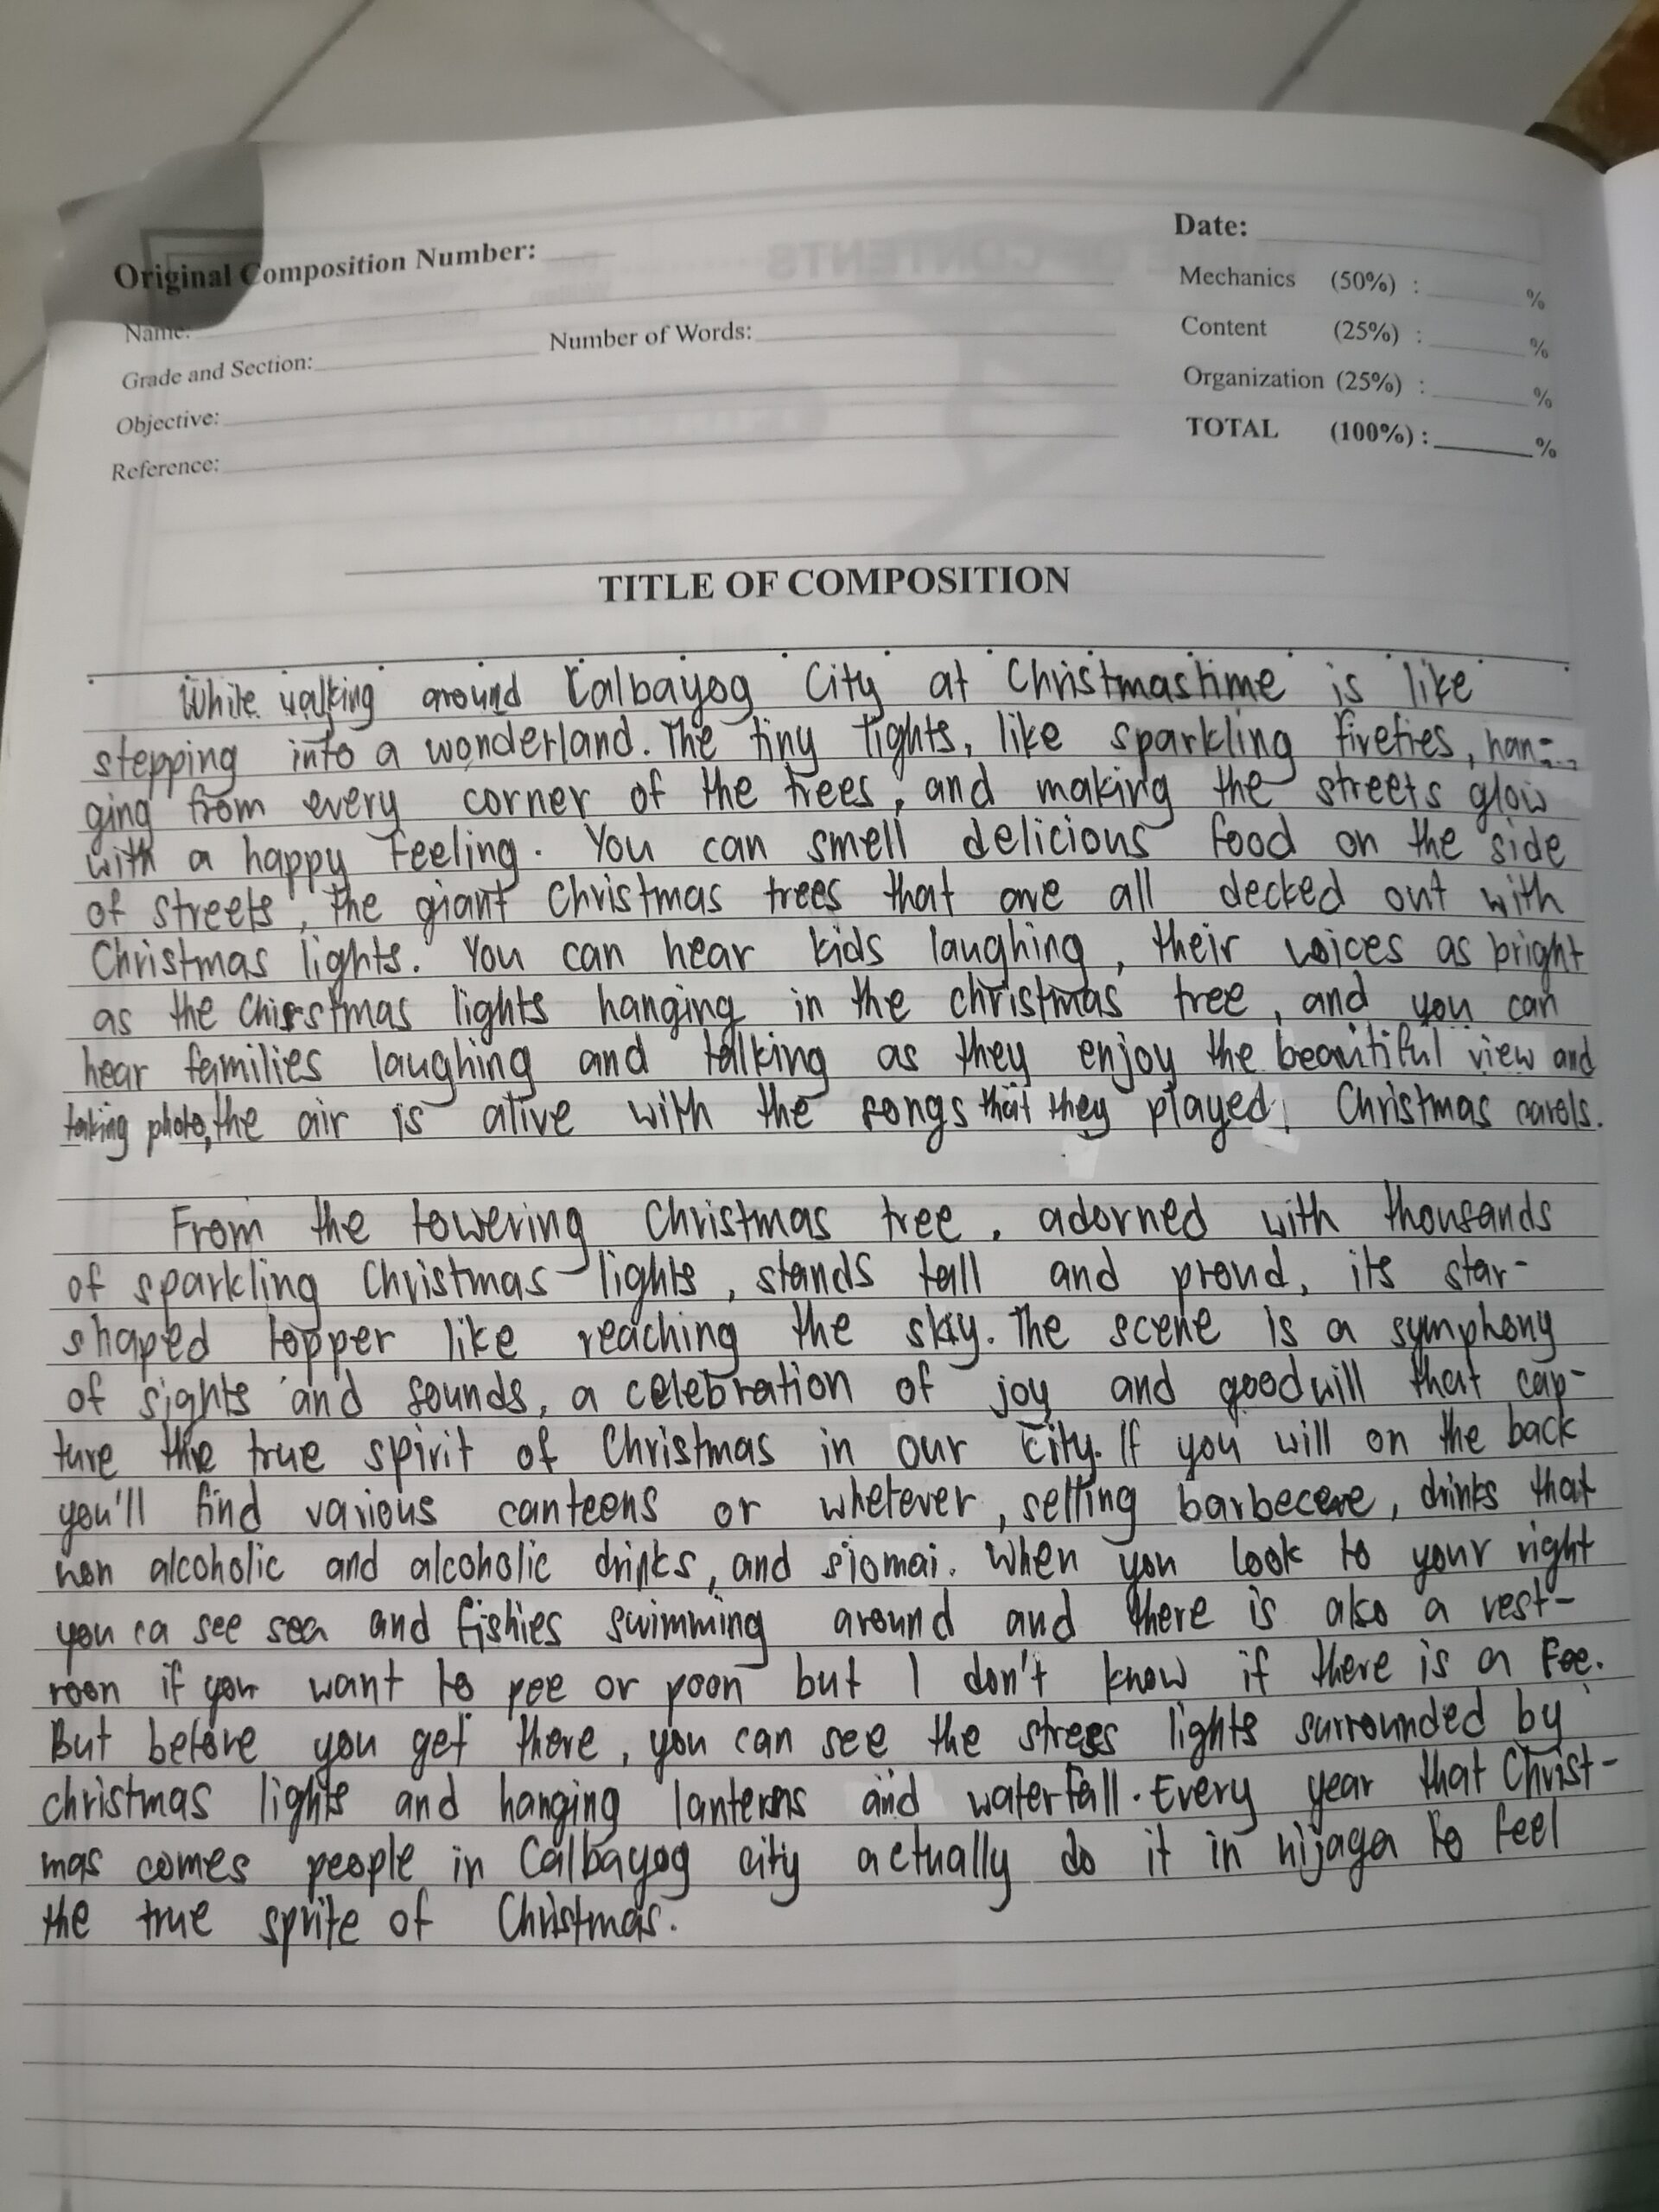 Original Composition Number:
Date:
Name:
Mechanics (50%) : %
Number of Words:
Content (25%) : %
Grade and Section:
Organization (25%) : %
Objective:
TOTAL (100%) : %
Reference:
TITLE OF COMPOSITION
While walking around Calbayog City at Christmastime is like
stepping into a wonderland. The tiny lights, like sparkling firefies, han-
ging from every corner of the trees, and making the streets glow
with a happy feeling. You can smell delicious food on the side
of streets, the giant Christmas trees that are all decked out with
Christmas lights. You can hear kids laughing, their voices as bright
as the Chirstmas lights hanging in the christmas tree, and you can
hear families laughing and talking as they enjoy the beautiful view and
taking photo, the air is alive with the songs that they played, Christmas carols.
From the towering Christmas tree, adorned with thousands
of sparkling Christmas lights, stands tall and proud, its star-
shaped topper like reaching the sky. The scene is a symphony
of sights and sounds, a celebration of joy and goodwill that cap-
ture the true spirit of Christmas in our city. If you will on the back
you'll find various canteens or whetever, selling barbecue, drinks that
non alcoholic and alcoholic drinks, and siomai. When you look to your right
you ca see sea and fishies swimming around and there is also a rest-
roon if you want to pee or poon but I don't know if there is a Fee.
But before you get there, you can see the strees lights surrounded by
christmas lights and hanging lanterns and waterfall. Every year that Christ-
mas comes people in Calbayog city actually do it in nijaga to feel
the true sprite of Christmas.